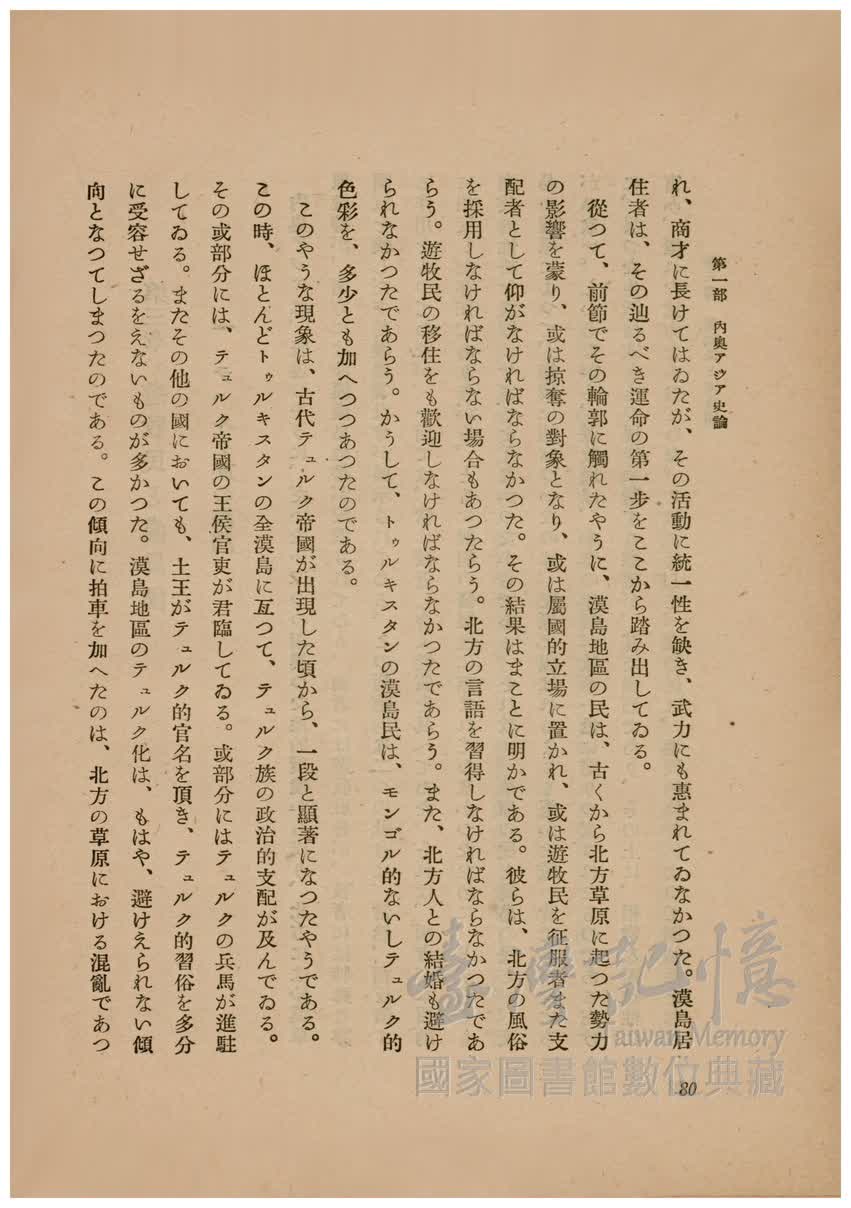 第一部 內奧アジア史論
れ、商才に長けてはゐたが、その活動に統一性を缺き、武力にも惠まれてゐなかつた。漠島居
住者は、その辿るべき運命の第一步をここから踏み出してゐる。
從つて、前節でその輪郭に觸れたやうに、漠島地區の民は、古くから北方草原に起つた勢力
の影響を蒙り、或は掠奪の對象となり、或は屬國的立場に置かれ、或は遊牧民を征服者また支
配者として仰がなければならなかつた。その結果はまことに明かである。彼らは、北方の風俗
を採用しなければならない場合もあつたらう。北方の言語を習得しなければならなかつたであ
らう。遊牧民の移住をも歡迎しなければならなかつたであらう。また、北方人との結婚も避け
られなかつたであらう。かうして、トゥルキスタンの漠島民は、モンゴル的ないしテュルク的
色彩を、多少とも加へつつあつたのである。
このやうな現象は、古代テュルク帝國が出現した頃から、一段と顯著になつたやうである。
この時、ほとんどトゥルキスタンの全漠島に亙つて、テュルク族の政治的支配が及んでゐる。
その或部分には、テュルク帝國の王侯官吏が君臨してゐる。或部分にはテュルクの兵馬が進駐
してゐる。またその他の國においても、土王がテュルク的官名を頂き、テュルク的習俗を多分
に受容せざるをえないものが多かつた。漠島地區のテュルク化は、もはや、避けえられない傾
向となつてしまつたのである。この傾向に拍車を加へたのは、北方の草原における混亂であつ
80
臺灣記憶
Taiwan Memory
國家圖書館數位典藏